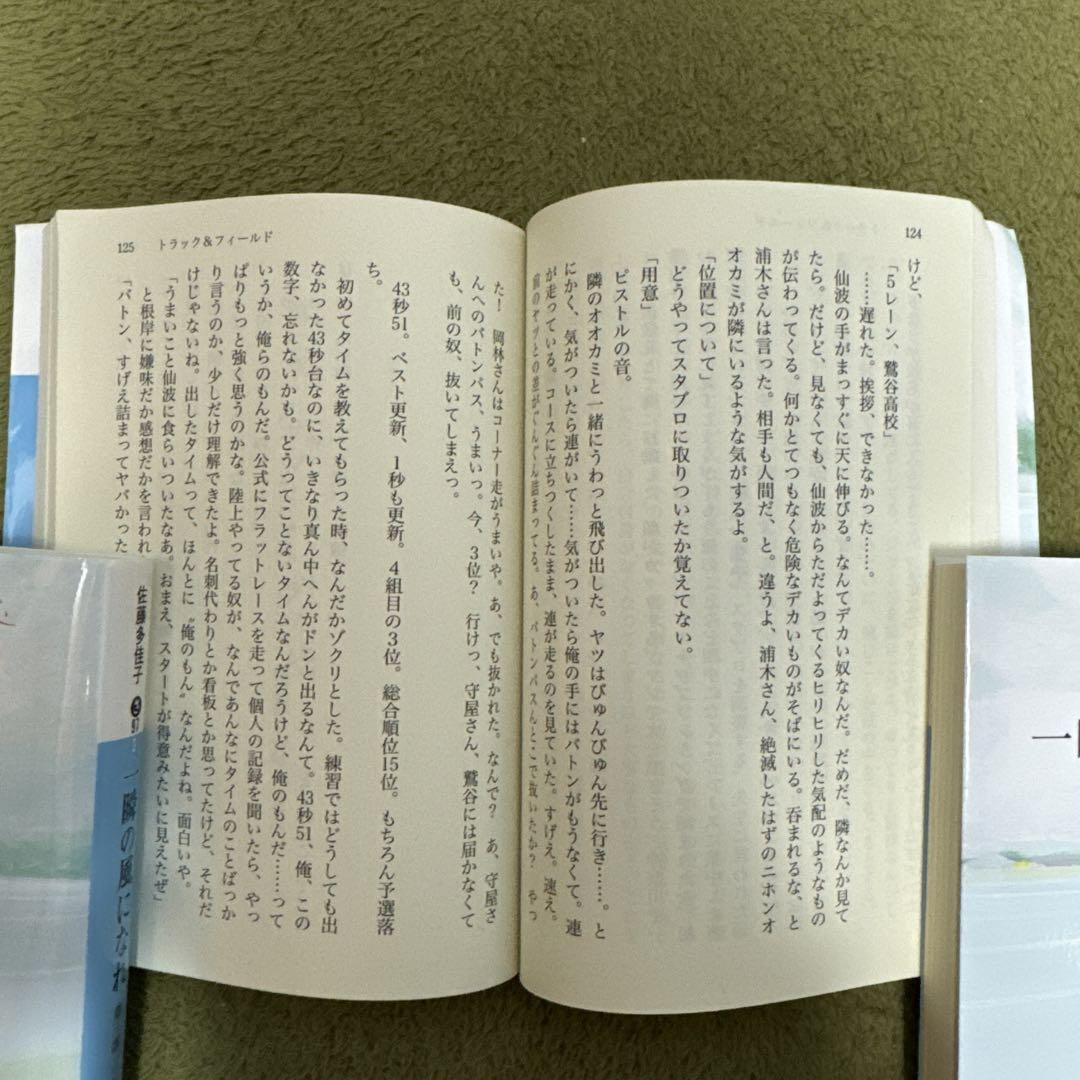 124
けど、
「5レーン、鷲谷高校」
……遅れた。挨拶、できなかった……。
仙波の手がまっすぐに天に伸びる。なんてデカい奴なんだ。だめだ、隣なんか見て
たら。だけど、見なくても、仙波からただよってくるヒリヒリした気配のようなもの
が伝わってくる。何かとてつもなく危険なデカいものがそばにいる。呑まれるな、と
浦木さんは言った。相手も人間だ、と。違うよ、浦木さん、絶滅したはずのニホンオ
オカミが隣にいるような気がするよ。
「位置について」
どうやってスタブロに取りついたか覚えてない。
「用意」
ピストルの音。
隣のオオカミと一緒にうわっと飛び出した。ヤツはびゅんびゅん先に行き……。と
にかく、気がついたら連がいて……気がついたら俺の手にはバトンがもうなくて。連
が走っている。コースに立ちつくしたまま、連が走るのを見ていた。すげえ。速え。
前のヤツとの差がぐんぐん詰まってる。あ、バトンパスんとこで抜いたか？　やっ
125
トラック＆フィールド
た！　岡林さんはコーナー走がうまいや。あ、でも抜かれた。なんで？　あ、守屋さ
んへのバトンパス、うまいっ。今、3位？　行けっ、守屋さん、鷲谷には届かなくて
も、前の奴、抜いてしまえっ。
43秒51。ベスト更新、1秒も更新。4組目の3位。総合順位15位。もちろん予選落
ち。
初めてタイムを教えてもらった時、なんだかゾクリとした。練習ではどうしても出
なかった43秒台なのに、いきなり真ん中へんがドンと出るなんて。43秒51、俺、この
数字、忘れないかも。どうってことないタイムなんだろうけど、俺のもんだ……って
いうか、俺らのもんだ。公式にフラットレースを走って個人の記録を聞いたら、やっ
ぱりもっと強く思うのかな。陸上やってる奴が、なんであんなにタイムのことばっか
り言うのか、少しだけ理解できたよ。名刺代わりとか看板とか思ってたけど、それだ
けじゃないね。出したタイムって、ほんとに〝俺のもん〟なんだよね。面白いや。
「うまいこと仙波に食らいついたなあ。おまえ、スタートが得意みたいに見えたぜ」
と根岸に嫌味だか感想だかを言われ
「バトン、すげえ詰まってヤバかった
佐藤多佳子
一瞬の風になれ
一